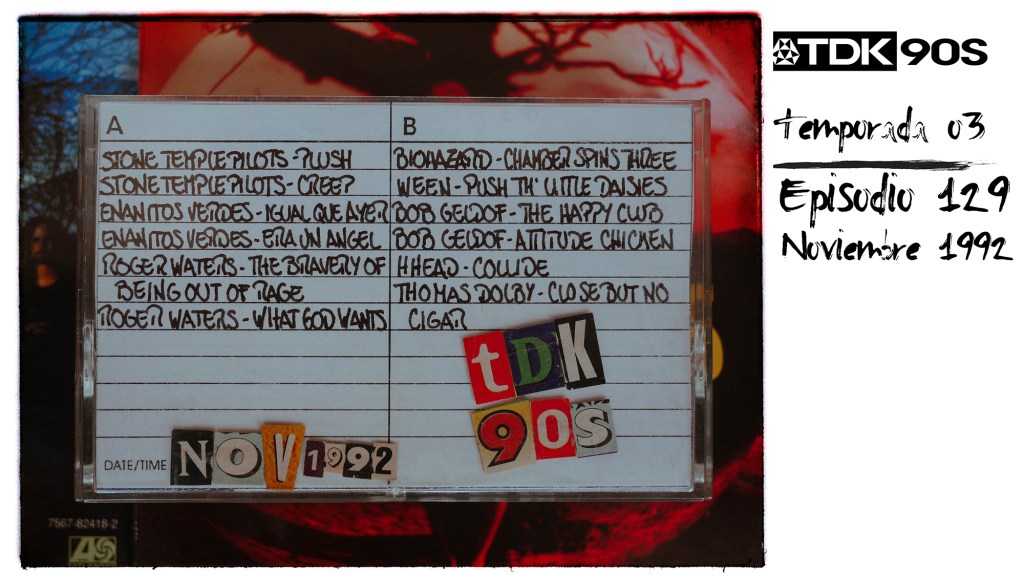 A
STONE TEMPLE PILOTS - PLUSH
STONE TEMPLE PILOTS - CREEP
ENANITOS VERDES - IGUAL QUE AYER
ENANITOS VERDES - ERA UN ANGEL
ROGER WATERS - THE BRAVERY OF
BEING OUT OF RAGE
ROGER WATERS - WHAT GOD WANTS
B
BIOHAZARD - CHAMBER SPINS THREE
WEEN - PUSH TH' LITTLE DAISIES
BOB GELDOF - THE HAPPY CLUB
BOB GELDOF - ATTITUDE CHICKEN
HHEAD - COLLIDE
THOMAS DOLBY - CLOSE BUT NO
CIGAR
tDK
90S
DATE/TIME NOV 1992
7567-82418-2
TDK 90S
temporada 03
Episodio 129
Noviembre 1992